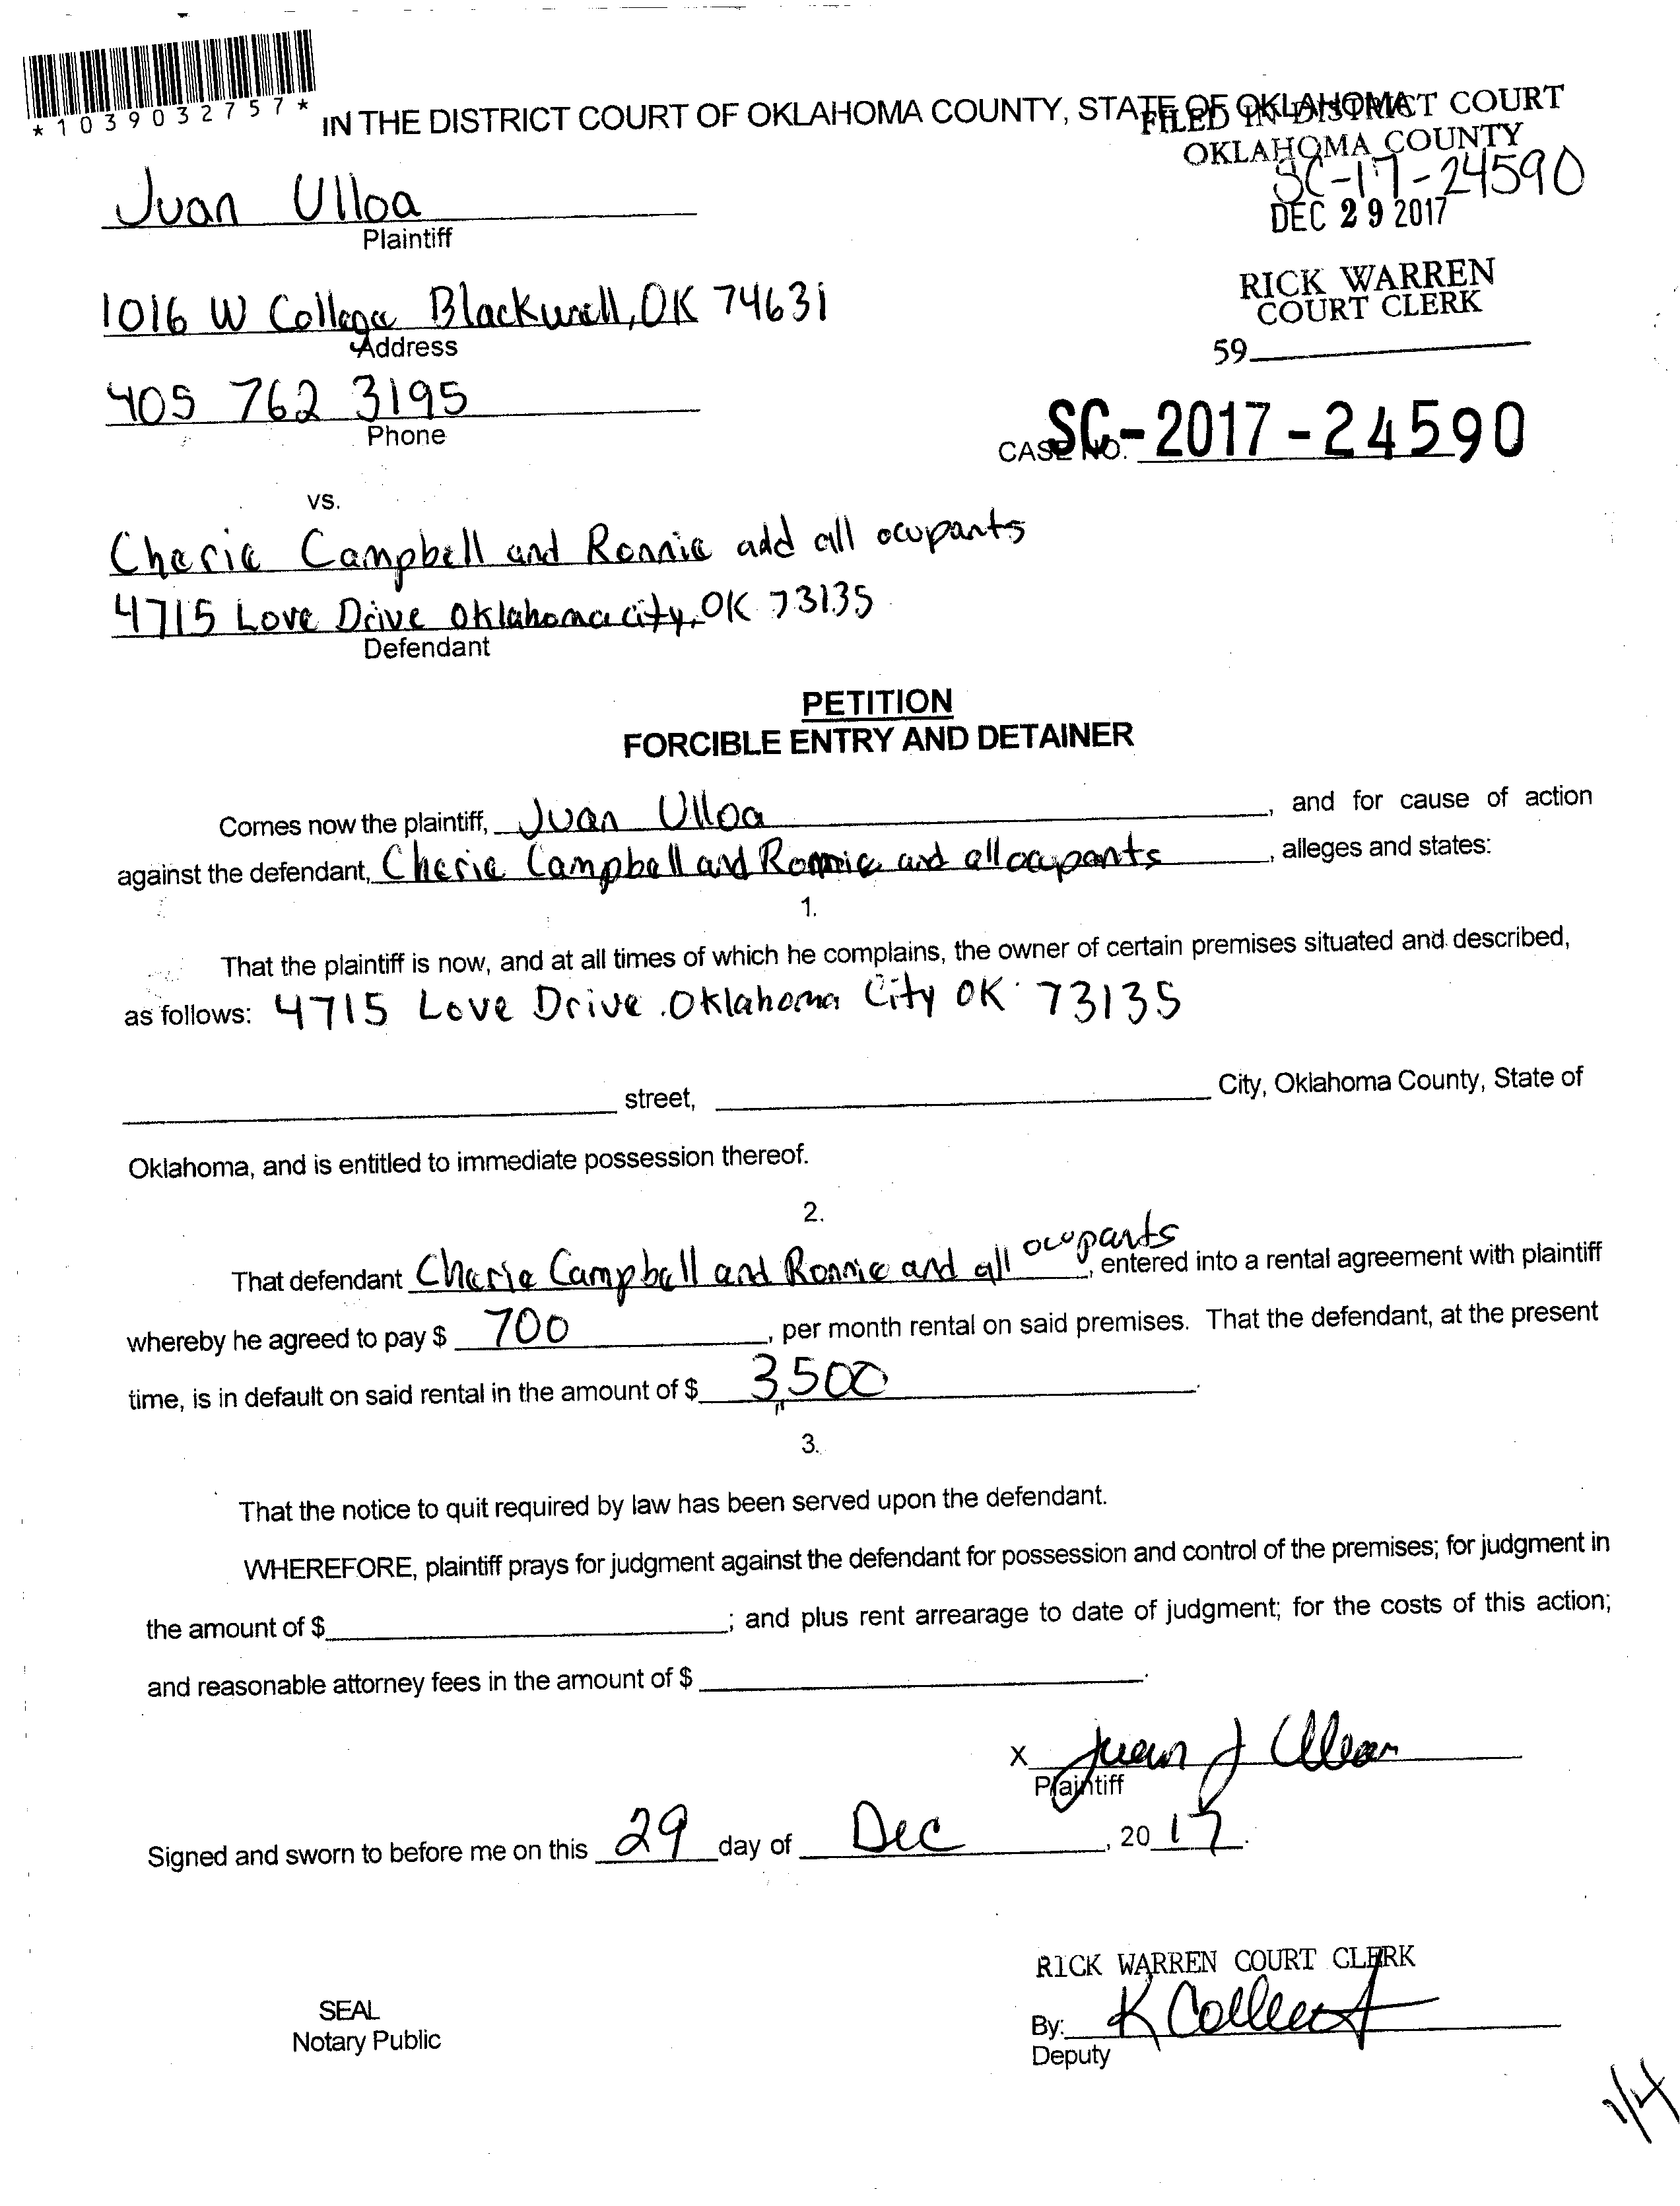 *1039032757*
IN THE DISTRICT COURT OF OKLAHOMA COUNTY, STATE OF OKLAHOMA
FILED IN DISTRICT COURT
OKLAHOMA COUNTY
SC-17-24590
DEC 29 2017
Juan Ulloa
Plaintiff
RICK WARREN
COURT CLERK
1016 W College Blackwell, OK 74631
Address
59
405 762 3195
Phone
CASE NO. SC-2017-24590
vs.
Cherie Campbell and Ronnie add all ocupants
4715 Love Drive Oklahoma city, OK 73135
Defendant
PETITION
FORCIBLE ENTRY AND DETAINER
Comes now the plaintiff, Juan Ulloa, and for cause of action
against the defendant, Cherie Campbell and Ronnie and all ocupants, alleges and states:
1.
That the plaintiff is now, and at all times of which he complains, the owner of certain premises situated and described,
as follows: 4715 Love Drive Oklahoma City OK 73135
street, City, Oklahoma County, State of
Oklahoma, and is entitled to immediate possession thereof.
2.
That defendant Cherie Campbell and Ronnie and all ocupants, entered into a rental agreement with plaintiff
whereby he agreed to pay $ 700, per month rental on said premises. That the defendant, at the present
time, is in default on said rental in the amount of $ 3,500.
3.
That the notice to quit required by law has been served upon the defendant.
WHEREFORE, plaintiff prays for judgment against the defendant for possession and control of the premises; for judgment in
the amount of $ ; and plus rent arrearage to date of judgment; for the costs of this action;
and reasonable attorney fees in the amount of $ .
x Juan J Ulloa
Plaintiff
Signed and sworn to before me on this 29 day of Dec, 2017.
RICK WARREN COURT CLERK
SEAL
Notary Public
By:
Deputy
1/4